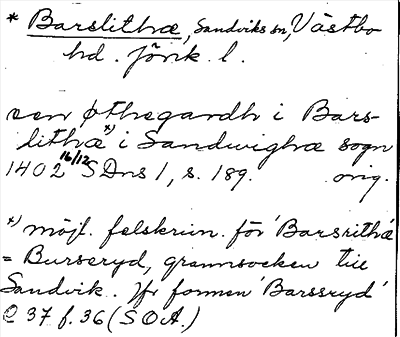 * Barslithæ, Sandviks sn, Västbo
hd. Jönk. l.
een øthegardh i Bars-
lithæ x) i Sandwighæ sogn
1402 16/12 SDns 1, s. 189. orig.
x) möjl. felskriv. för 'Barsrithæ'
= Burseryd, grannsocken till
Sandvik. Jfr formen 'Barssryd'
C 37 f. 36 (SOA.)